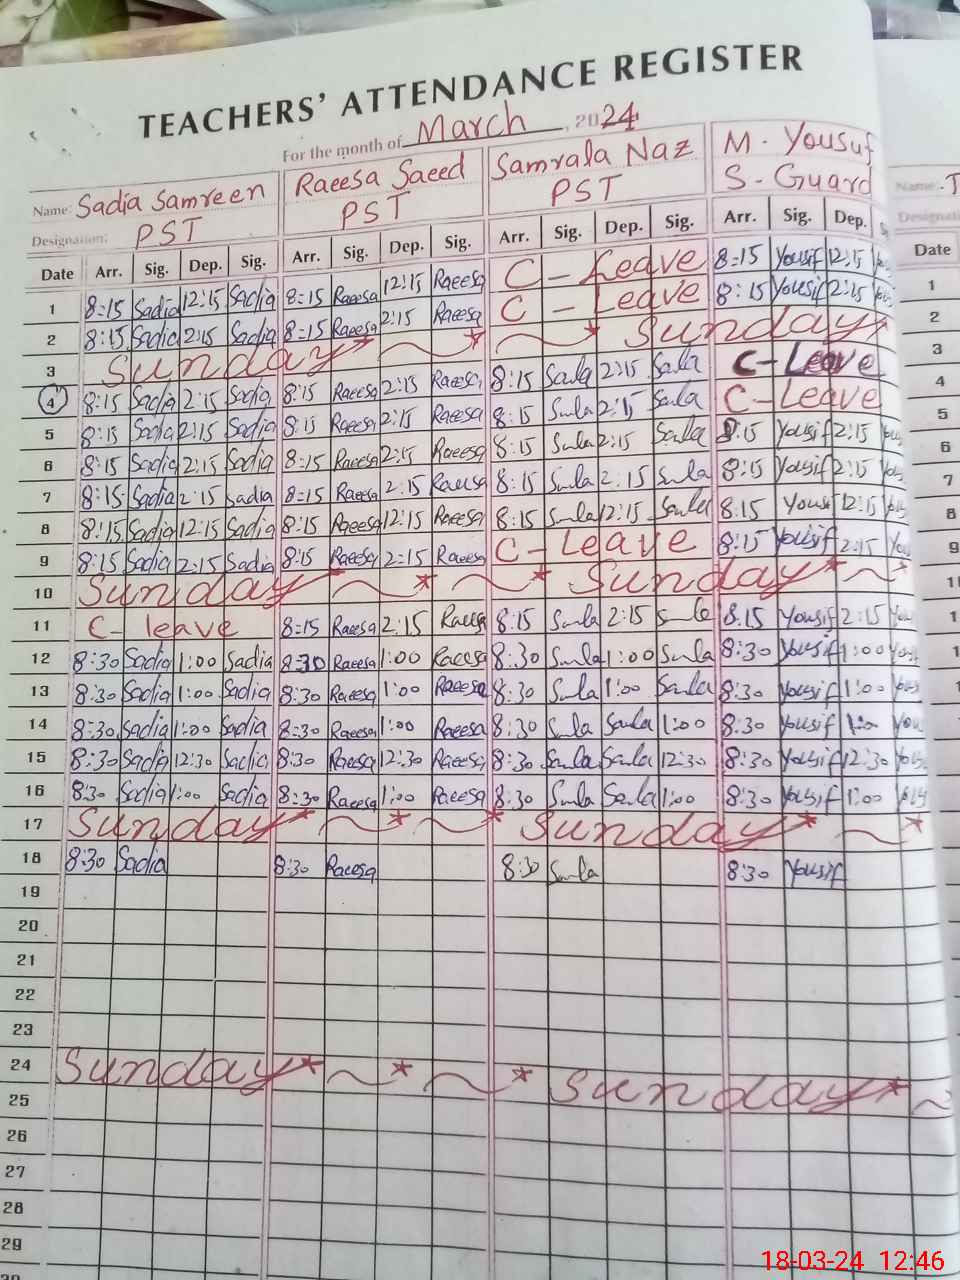 TEACHERS' ATTENDANCE REGISTER
For the month of March, 2024
Name: Sadia Samreen Raeesa Saeed Samrala Naz M. Yousuf
Designation: PST PST PST S-Guard
Date Arr. Sig. Dep. Sig. Arr. Sig. Dep. Sig. Arr. Sig. Dep. Sig. Arr. Sig. Dep.
1 8:15 Sadia 12:15 Sadia 8=15 Raeesa 12:15 Raeesa C-Leave 8=15 Yousif 12:15
2 8:15 Sadia 2:15 Sadia 8=15 Raeesa 2:15 Raeesa C-Leave 8:15 Yousif 2:15
3 Sunday Sunday
4 8:15 Sadia 2:15 Sadia 8:15 Raeesa 2:15 Raeesa 8:15 Saula 2:15 Saula C-Leave
5 8:15 Sadia 2:15 Sadia 8:15 Raeesa 2:15 Raeesa 8:15 Smla 2:15 Saula C-Leave
6 8:15 Sadia 2:15 Sadia 8=15 Raeesa 2:15 Raeesa 8:15 Smla 2:15 Saula 8:15 Yousif 2:15
7 8:15 Sadia 2:15 Sadia 8=15 Raeesa 2:15 Raeesa 8:15 Smla 2:15 Smla 8:15 Yousif 2:15
8 8:15 Sadia 12:15 Sadia 8:15 Raeesa 12:15 Raeesa 8:15 Smla 12:15 Saula 8:15 Yousif 12:15
9 8:15 Sadia 2:15 Sadia 8:15 Raeesa 2:15 Raeesa C-Leave 8:15 Yousif 2:15
10 Sunday Sunday
11 C-leave 8=15 Raeesa 2:15 Raeesa 8:15 Smla 2:15 Smla 8:15 Yousif 2:15
12 8:30 Sadia 1:00 Sadia 8=30 Raeesa 1:00 Raeesa 8:30 Smla 1:00 Smla 8:30 Yousif 1:00
13 8:30 Sadia 1:00 Sadia 8:30 Raeesa 1:00 Raeesa 8:30 Smla 1:00 Saula 8:30 Yousif 1:00
14 8:30 Sadia 1:00 Sadia 8=30 Raeesa 1:00 Raeesa 8:30 Smla Saula 1:00 8:30 Yousif 1:00
15 8:30 Sadia 12:30 Sadia 8:30 Raeesa 12:30 Raeesa 8:30 Saula Saula 12:30 8:30 Yousif 12:30
16 8:30 Sadia 1:00 Sadia 8:30 Raeesa 1:00 Raeesa 8:30 Smla Saula 1:00 8:30 Yousif 1:00
17 Sunday Sunday
18 8:30 Sadia 8:30 Raeesa 8:30 Smla 8:30 Yousif
19
20
21
22
23
24 Sunday Sunday
25
26
27
28
29
Name:
Date
1
2
3
4
5
6
7
8
9
18-03-24 12:46